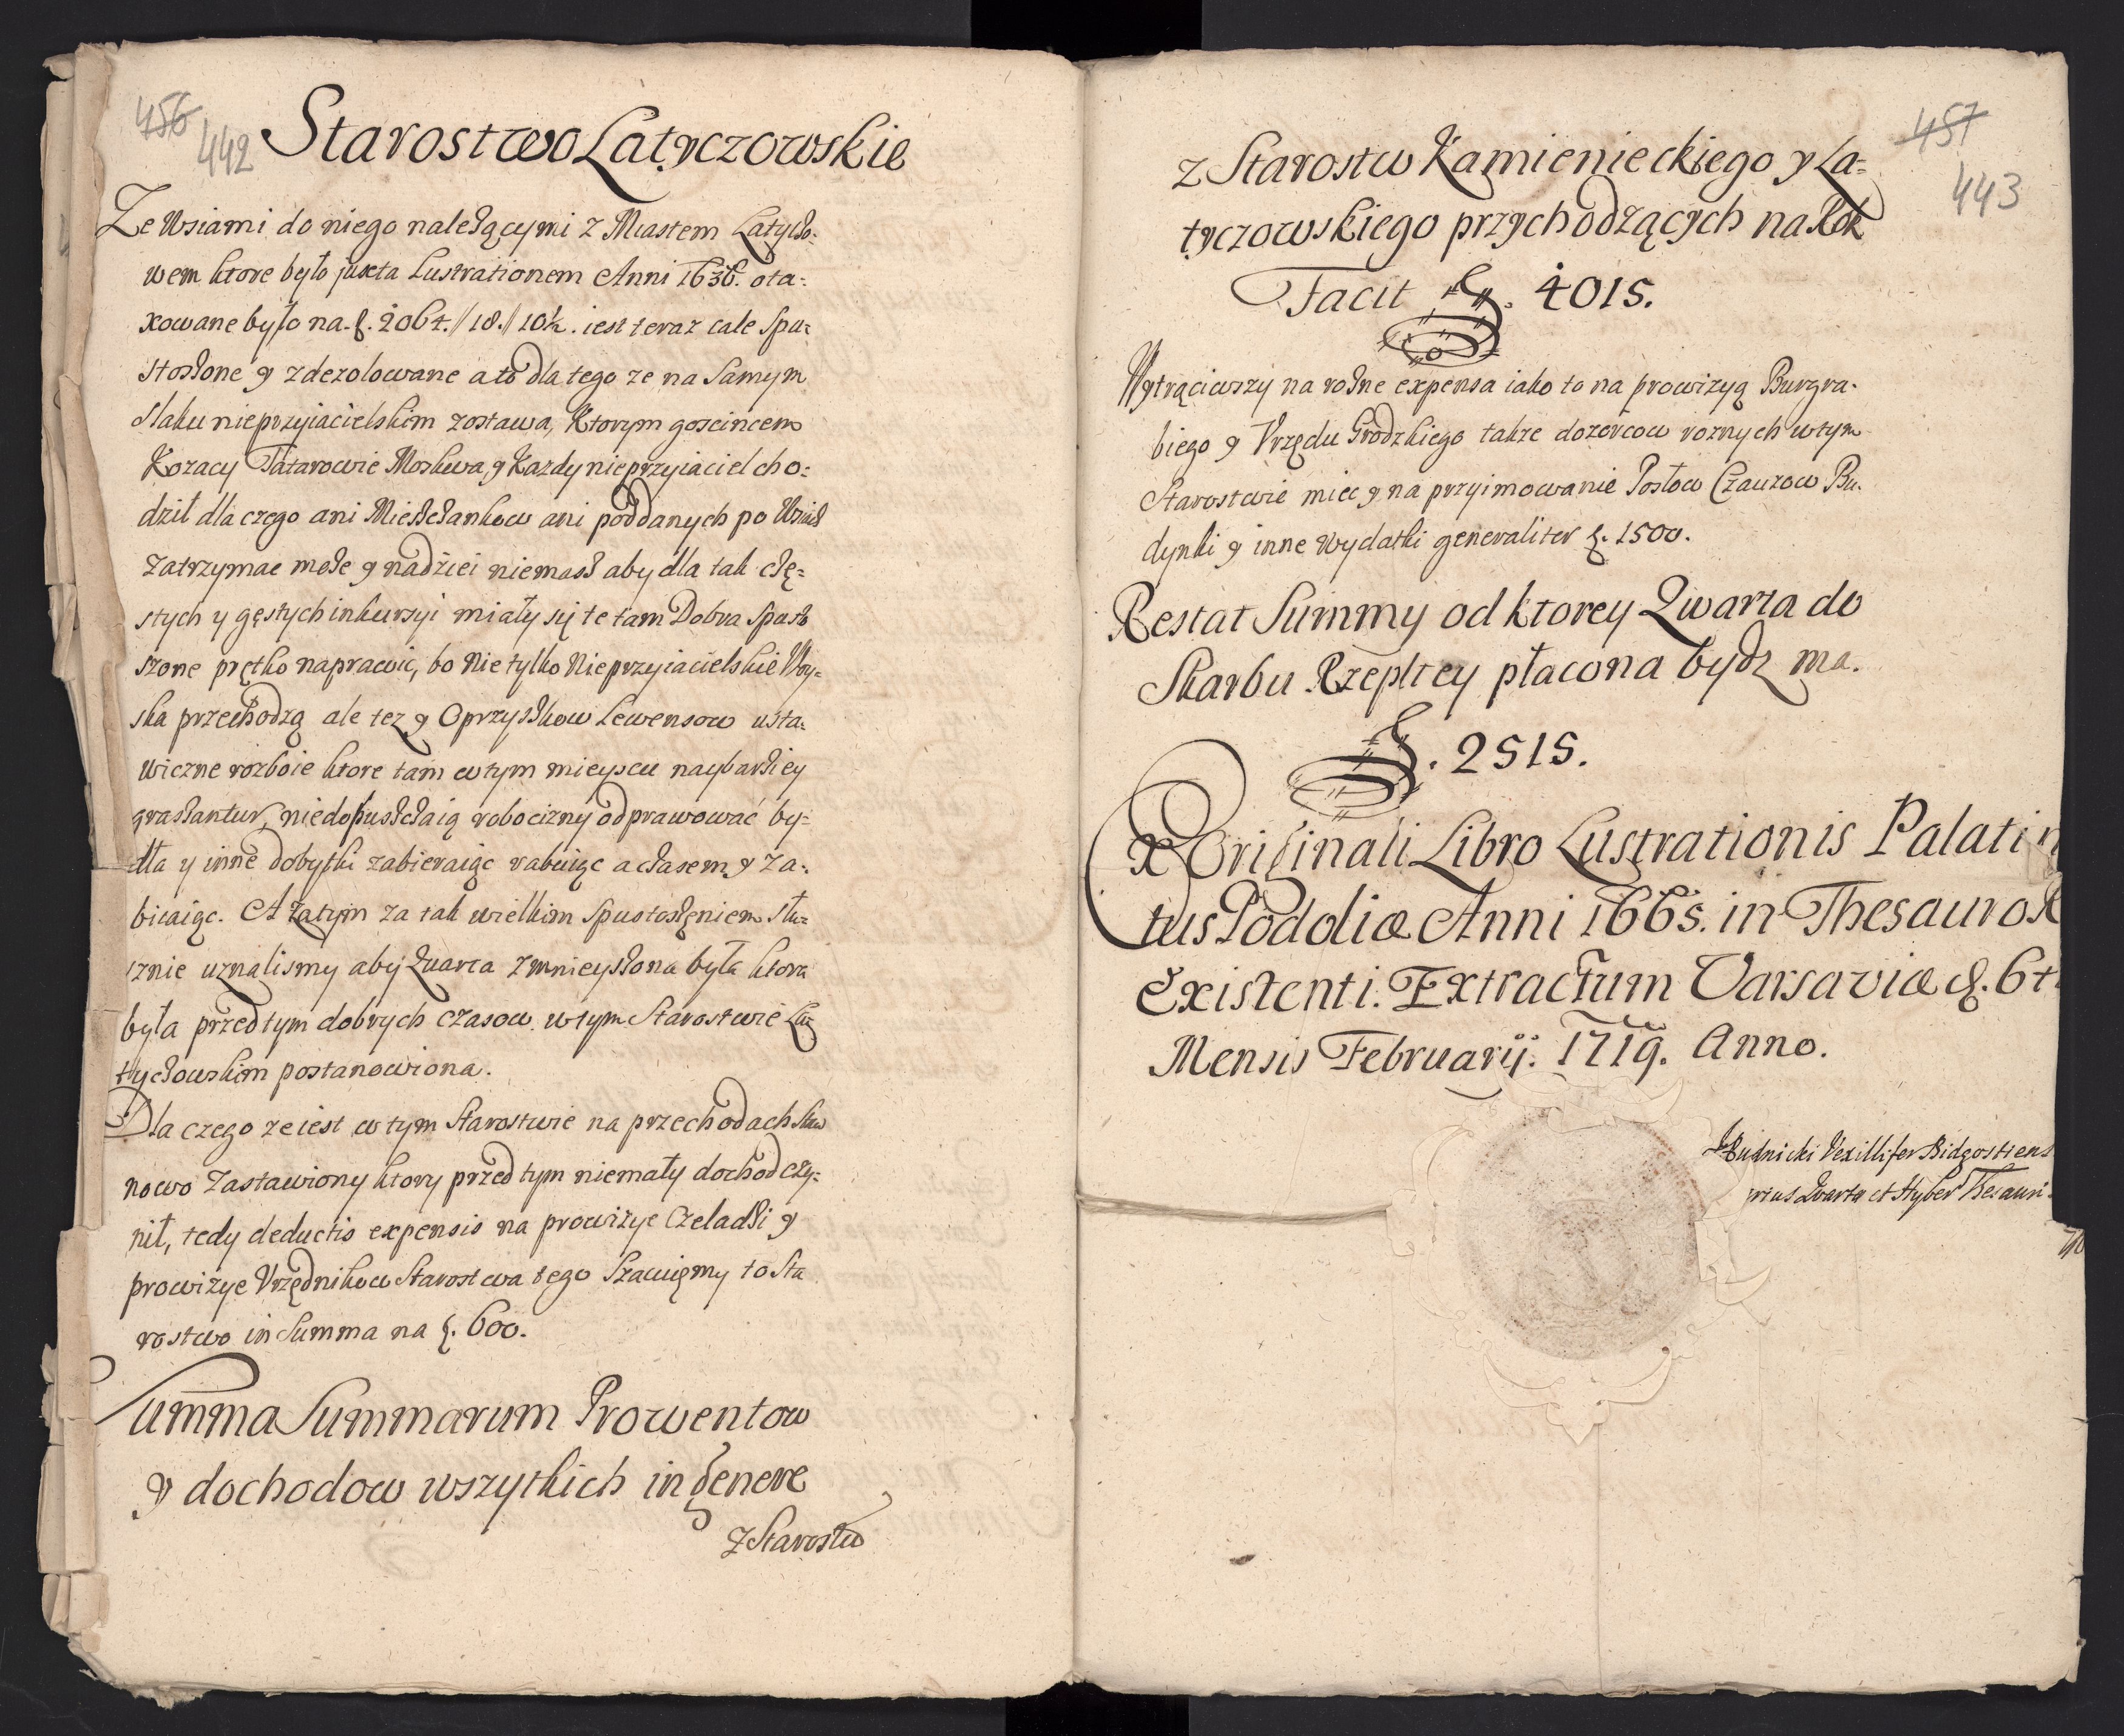 456
442
Starostwo Latyczowskie
Ze Wsiami do niego należącymi z Miastem Latyczo:
wem ktore było juxta Lustrationem Anni 1636. ota:
xowane było na f. 2064.//18.//10½. iest teraz cale spu:
stoszone y zdezolowane a to dla tego ze na samym
szlaku nieprzyiacielskim zostawa, Ktorym goscincem
Kozacy Tatarowie Moskwa, y Kazdy nieprzyiaciel cho:
dził dla czego ani Mieszczankow ani poddanych po Wsiach
zatrzymac może y nadziei niemasz aby dla tak czę:
stych y gęstych inkursyi miały się te tam Dobra spusto
szone prętko naprawic, bo nie tylko Nieprzyiacielskie Woy:
ska przechodzą ale tez y Opryszkow Lewensow usta:
wiczne rozboie ktore tam w tym mieyscu naybarziey
grassantur, niedopuszczaią robocizny odprawować by:
dła y inne dobytki zabieraiąc rabuiąc a czasem y za:
biiaiąc. A zatym za tak wielkim spustoszeniem słu:
sznie uznalismy aby Quarta zmnieyszona była ktora
była przedtym dobrych czasow w tym Starostwie La:
tyczowskim postanowiona.
Dla czego ze iest w tym Starostwie na przechodach Staw
nowo zastawiony ktory przed tym niemały dochod czy:
nił, tedy deductis expensis na prowizye Czeladzi y
prowizye Vrzędnikow Starostwa tego Szacuięmy to Sta
rostwo in Summa na f. 600.
Summa Summarum Prowentow
y dochodow wszytkich in genere
z Starostw
457
443
z Starostw Kamienieckiego y La:
tyczowskiego przychodzących na Rok
Facit f. 4015.
Wytrąciwszy na rożne expensa iako to na prowizyą Burgra:
biego y Vrzędu Grodzkiego takze dozorcow roznych w tym
Starostwie miec y na przyimowanie Posłow Czauzow Bu:
dynki y inne wydatki generaliter f. 1500.
Restat Summy od ktorey Qwarta do
Skarbu Rzepltey płacona bydz ma.
f. 2515.
Ex Originali Libro Lustrationis Palatin
tus Podoliæ Anni 1665. in Thesauro R
existenti. Extractum Varsaviæ d. 6t
Mensis Februarij. 1719. Anno.
Rudnicki Vexillifer Bidgostiens
rius Quartæ et Hyber Thesauri